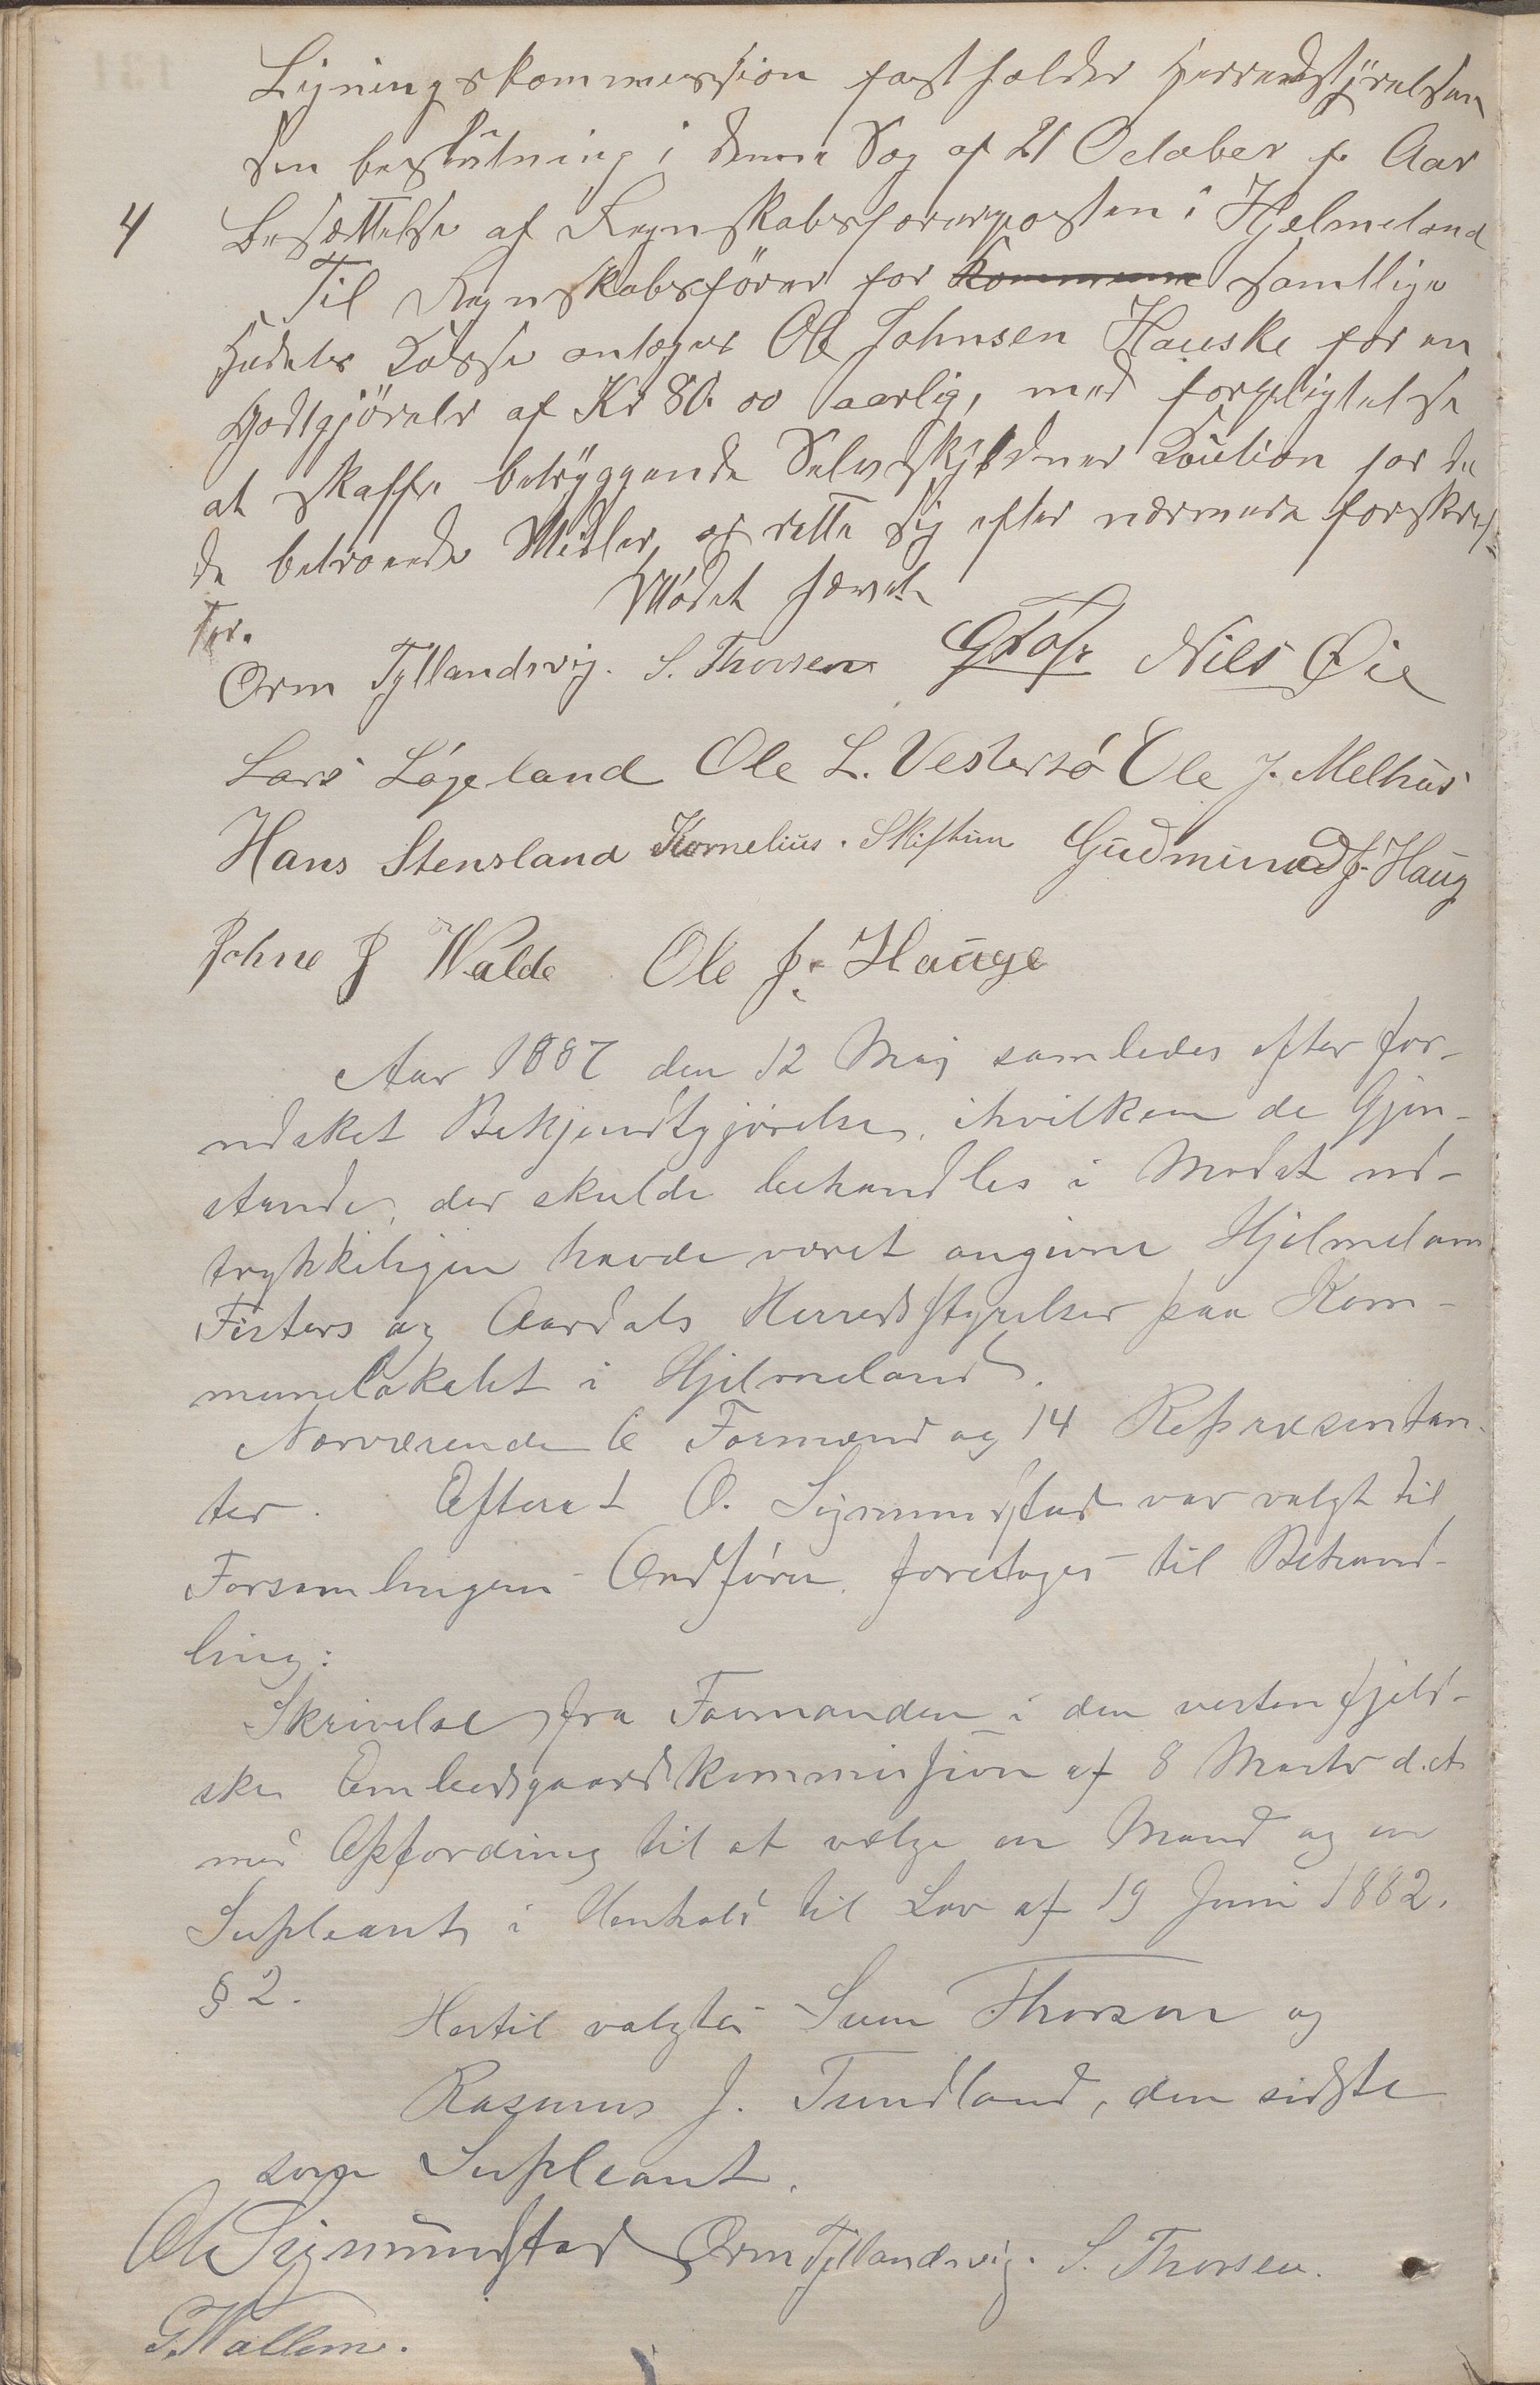 Ligningskommission fastholder Herredstyrelsen
sin beslutning i denne Sag af 21 October f. Aar
4 Besættelse af Regnskabsførerposten i Hjelmeland
Til Regnskabsfører for Kommune samtlige
Kasse antages Ole Johnsen Hauske for en
Godtgjørelse af Kr 80.00 aarlig, med forpligtelse
at skaffe betryggende Selvskyldner Kaution for de
betroede Midler, og rette sig efter nærmere forskrif-
ter.
Mødet hævet
Orm Tyllandsvig. S. Thorsen Nils Øie
Lars Løgeland Ole L. Vestersø Ole J. Melhus
Hans Stensland Kornelius. Skiftun Gudmund J. Haug
Johne J Walde Ole J. Hauge
Aar 1887 den 12 Maj samledes efter for-
udsket Bekjendtgjørelse, ihvilken de Gjen-
stande, der skulde behandles i Mødet ud-
trykkeligen havde været angivne Hjelmelan
Fisters og Aardals Herredsstyrelser paa Kom-
munelokalet i Hjelmeland.
Nærværende 6 Formænd og 14 Repræsentan-
ter. Efterat O. Sigmundstad var valgt til
Forsamlingens Ordfører, foretoges til Behand-
ling:
Skrivelse fra Formanden i den vestenfjeld-
ske Embedsgaardskommission af 8 Marts d.A.
med Opfordring til at vælge en Mand og en
Supleant i Henhold til Lov af 19 Juni 1882.
§ 2.
Hertil valgtes Sven Thorsen og
Rasmus J. Tundland, den sidste
som Supleant.
Ole Sigmundstad Orm Tyllandsvig. S. Thorsen.
G. Wallem.